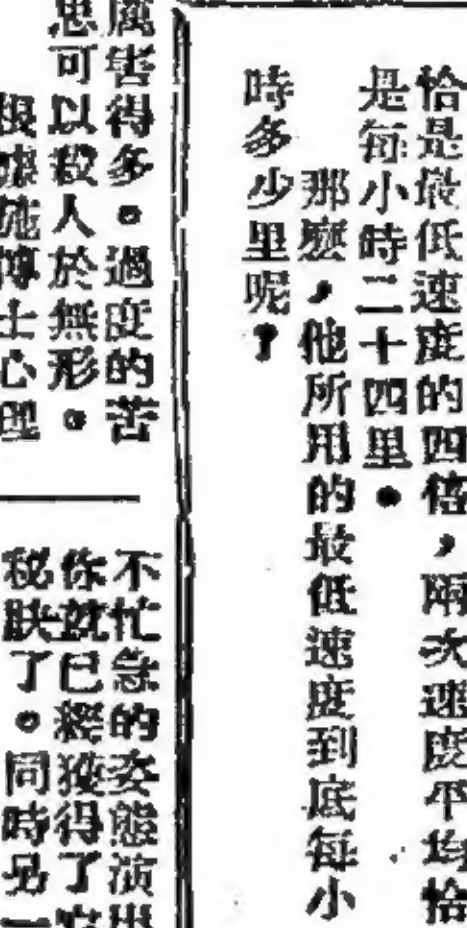 恰是最低速度的四倍，兩次速度平均恰
是每小時二十四里。
那麼，他所用的最低速度到底每小
時多少里呢？
厲害得多。過度的苦
思可以殺人於無形。
根據施博士心理
不忙急的姿態演出
你就已經獲得了
秘訣了。同時另一